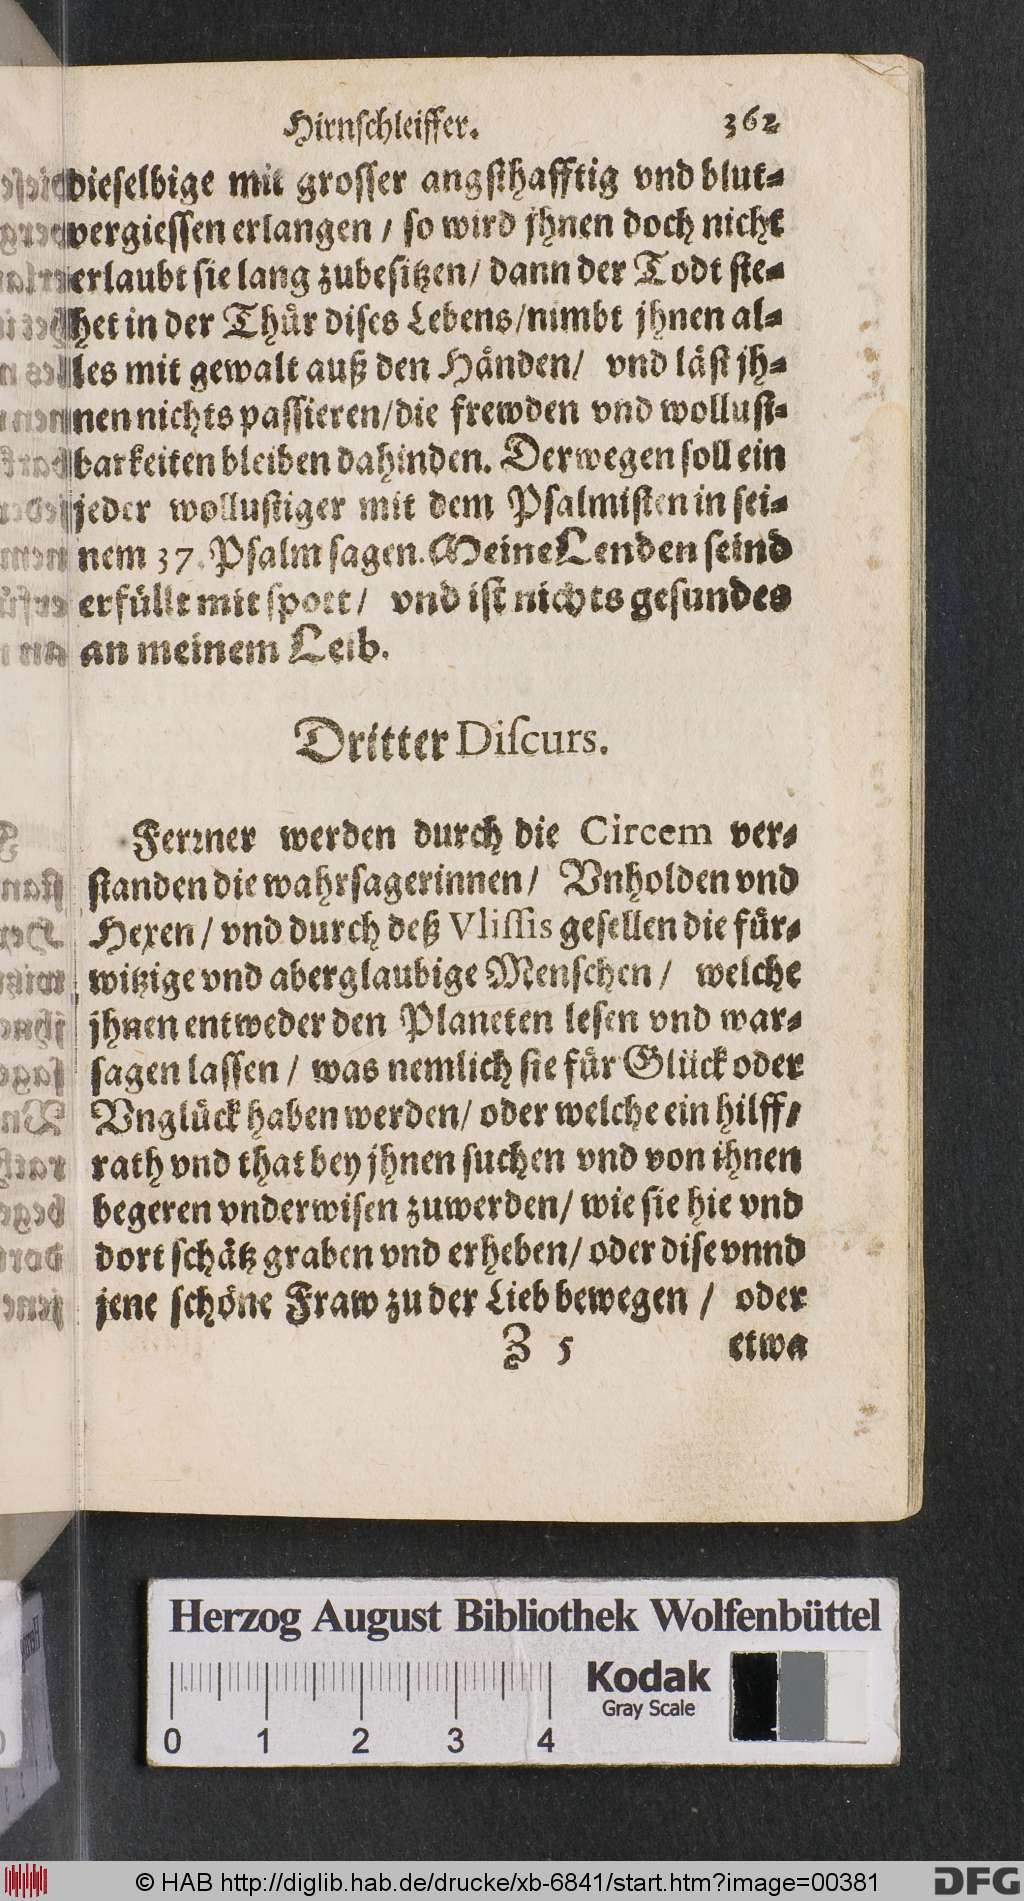 Hirnschleiffer. 362
dieselbige mit grosser angsthafftig vnd blut-
vergiessen erlangen / so wird jhnen doch nicht
erlaubt sie lang zubesitzen / dann der Todt ste-
het in der Thuͤr dises Lebens / nimbt jhnen al-
les mit gewalt auß den Haͤnden / vnd laͤst jh-
nen nichts passieren / die frewden vnd wollust-
barkeiten bleiben dahinden. Derwegen soll ein
jeder wollustiger mit dem Psalmisten in sei-
nem 37. Psalm sagen. Meine Lenden seind
erfuͤllt mit spott / vnd ist nichts gesundes
an meinem Leib.
Dritter Discurs.
Ferrner werden durch die Circem ver-
standen die wahrsagerinnen / Vnholden vnd
Hexen / vnd durch deß Vlissis gesellen die fuͤr-
witzige vnd aberglaubige Menschen / welche
jhnen entweder den Planeten lesen vnd war-
sagen lassen / was nemlich sie fuͤr Gluͤck oder
Vngluͤck haben werden / oder welche ein hilff /
rath vnd that bey jhnen suchen vnd von ihnen
begeren vnderwisen zuwerden / wie sie hie vnd
dort schaͤtz graben vnd erheben / oder dise vnnd
jene schoͤne Fraw zu der Lieb bewegen / oder
Z 5 etwa
Herzog August Bibliothek Wolfenbüttel
Kodak
Gray Scale
0 1 2 3 4
© HAB http://diglib.hab.de/drucke/xb-6841/start.htm?image=00381
DFG